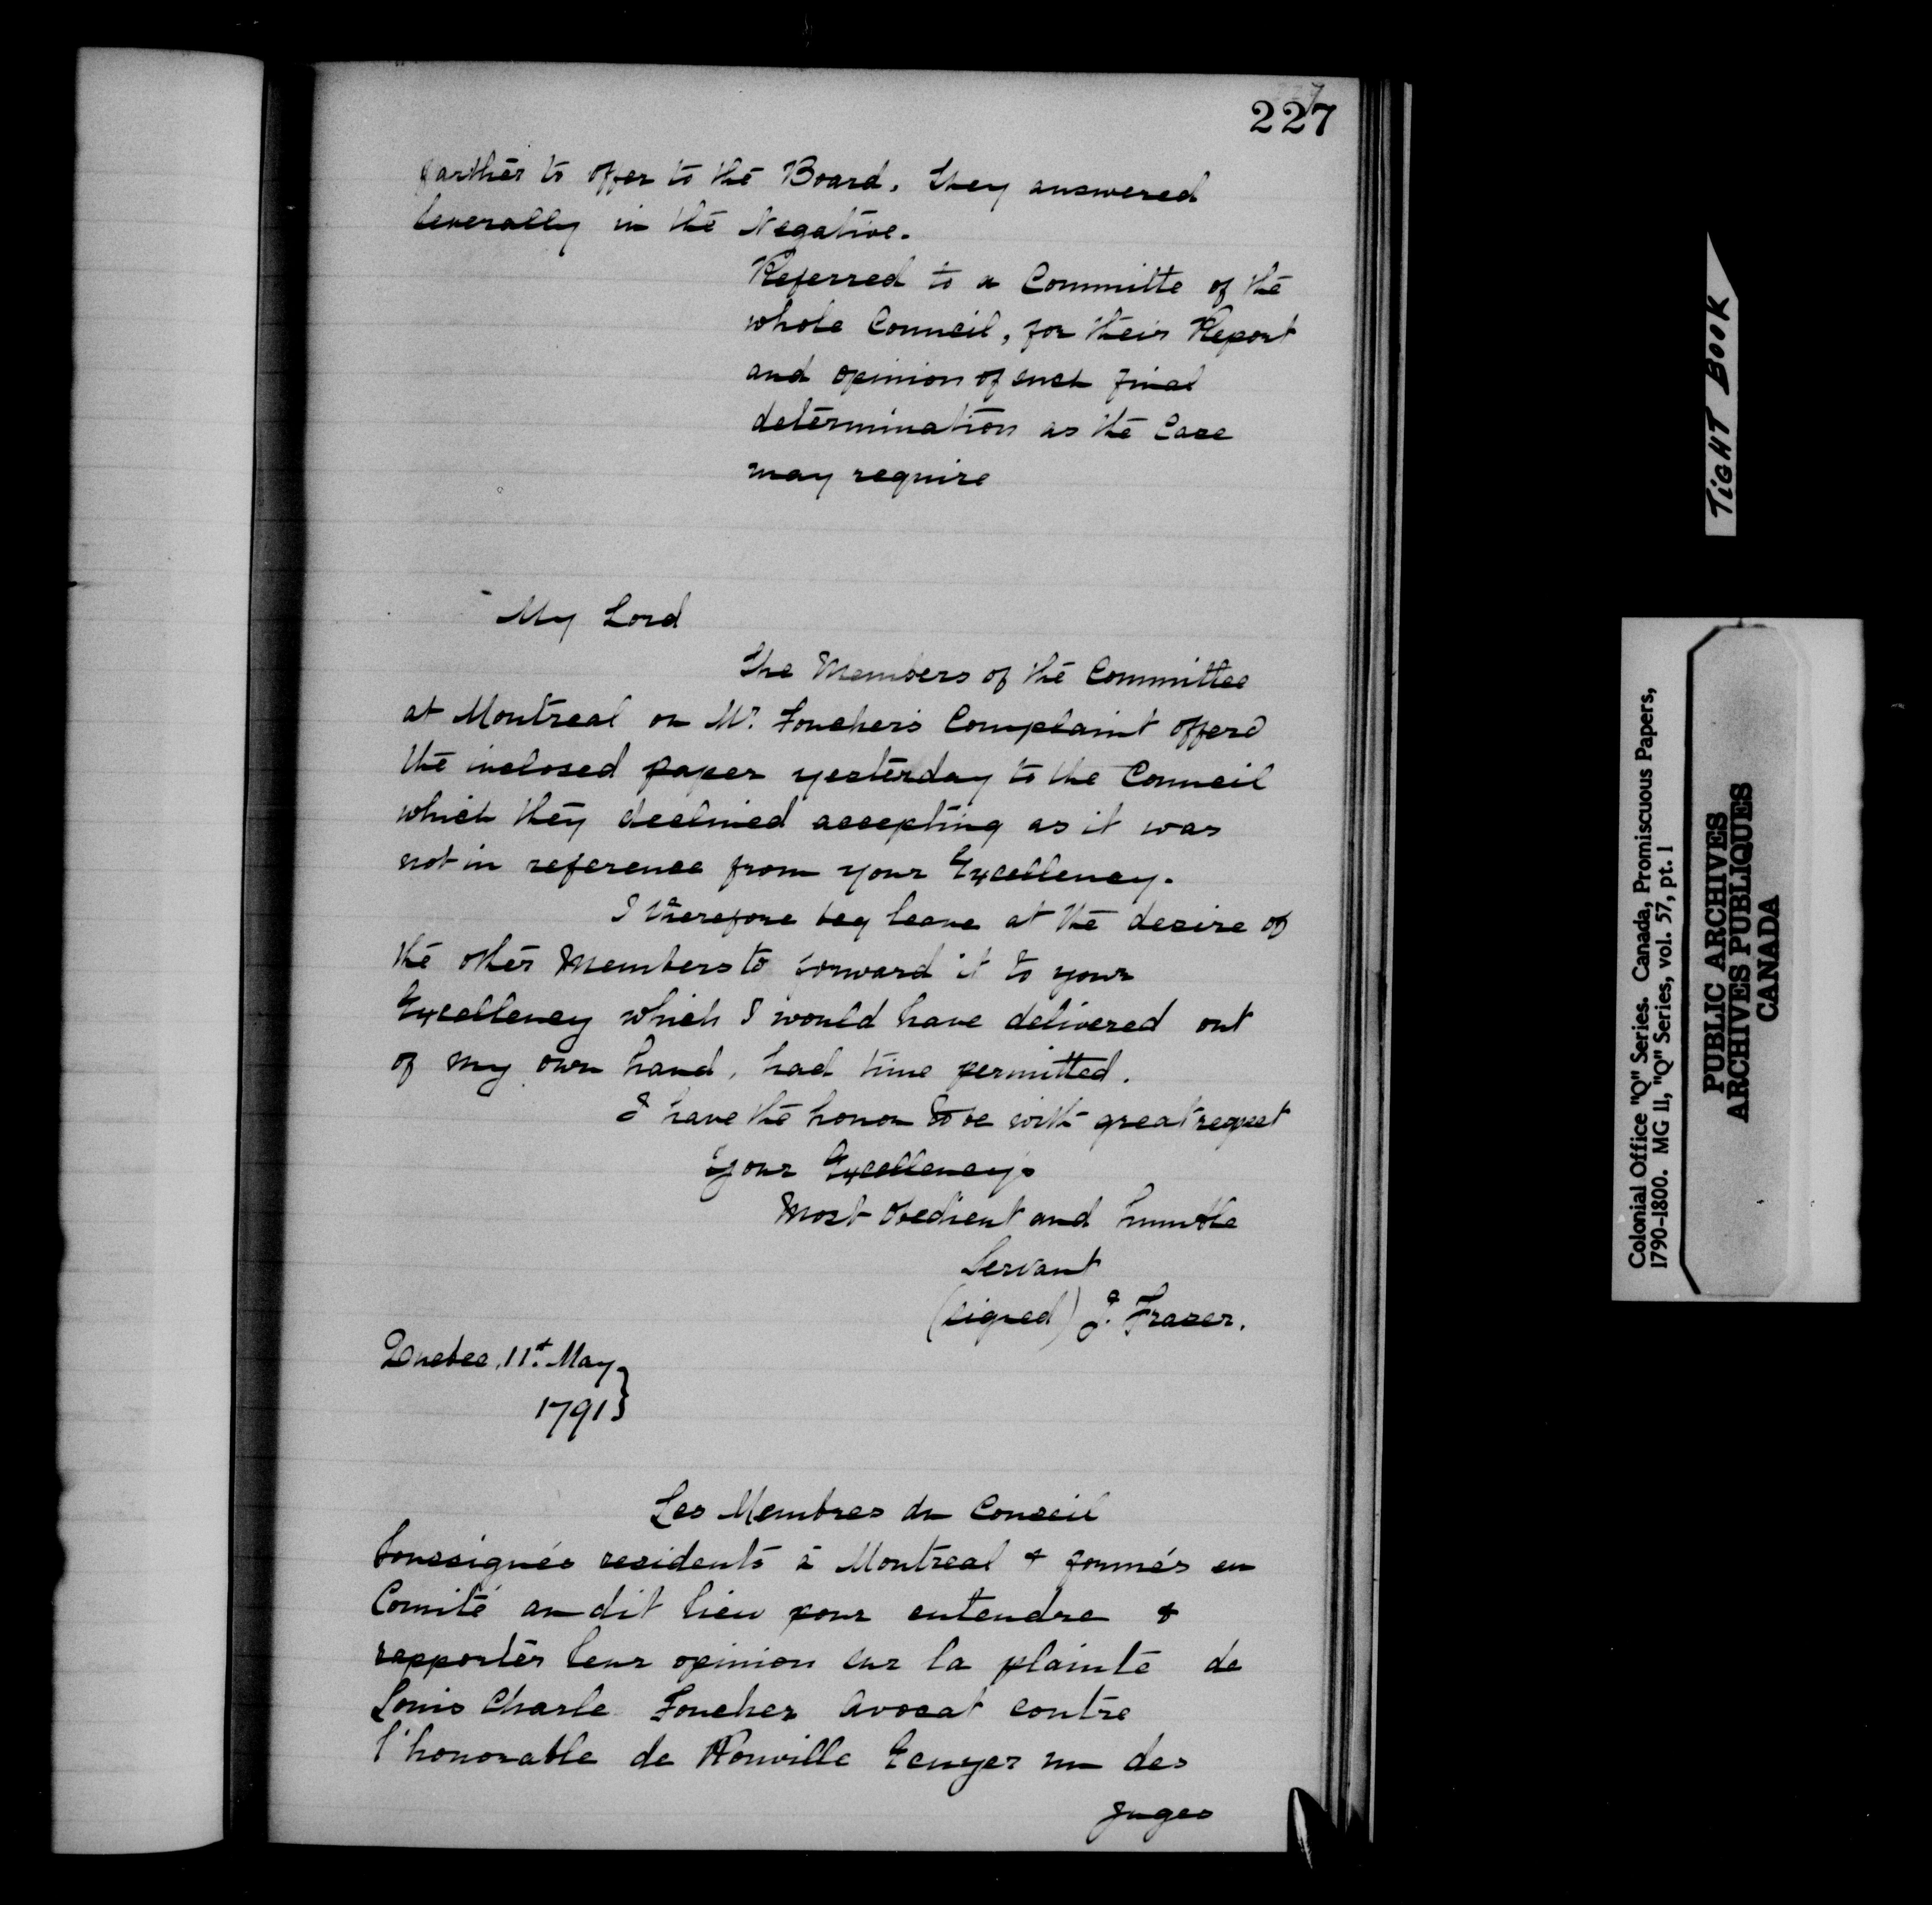 227
farther to offer to the Board, they answered
Severally in the Negative.
Referred to a Committe of the
whole Council, for their Report
and opinion of such final
determination as the Case
may require
My Lord
The Members of the Committee
at Montreal on Mr. Foucher's Complaint offerd
the inclosed paper yesterday to the Council
which they declined accepting as it was
not in reference from your Excellency.
I therefore beg leave at the desire of
the other Members to forward it to your
Excellency which I would have delivered out
of my own hand, had time permitted.
I have the honor to be with great respect
Your Excellency's
Most Obedient and humble
Servant
(signed) J. Fraser.
Quebec, 11t. May
1791}
Les Membres du Conseil
Soussignés residents à Montreal & formés en
Comité au dit lieu pour entendre &
rapporter leur opinion sur la plainte de
Louis Charle Foucher Avocat contre
l'honorable de Rouville Ecuyer un des
juges
TIGHT BOOK
Colonial Office "Q" Series. Canada, Promiscuous Papers,
1790-1800. MG 11, "Q" Series, vol. 57, pt. 1
PUBLIC ARCHIVES
ARCHIVES PUBLIQUES
CANADA